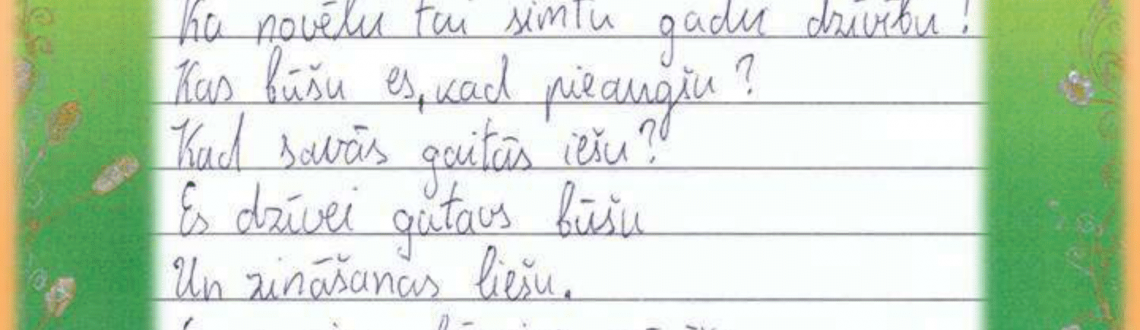 Ka novēlu tai simtu gadu dzīvību!
Kas būšu es, kad pieaugšu?
Kad savās gaitās iešu?
Es dzīvei gatavs būšu
Un zināšanas liešu.